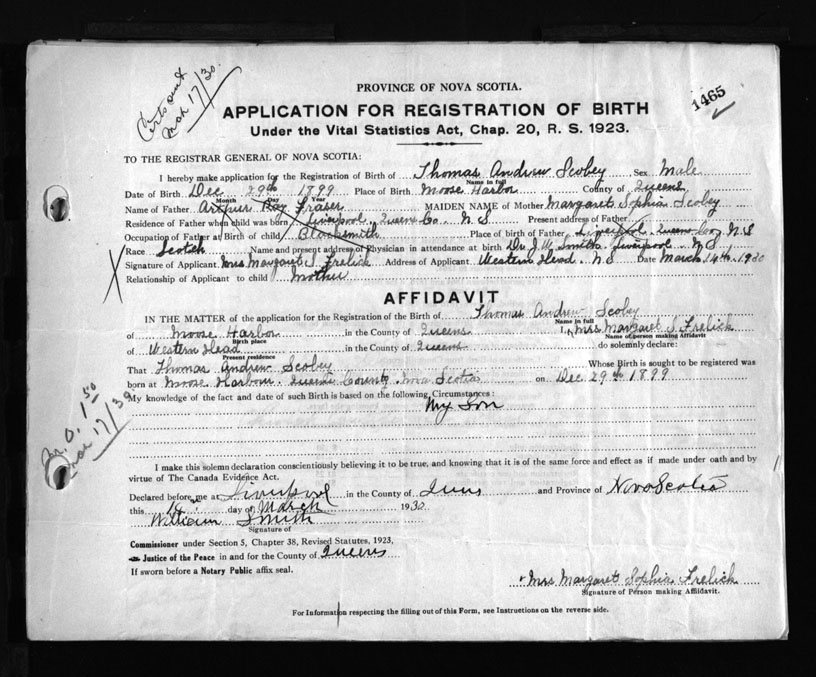 Certs out
Mar 17/30.
1465
PROVINCE OF NOVA SCOTIA.
APPLICATION FOR REGISTRATION OF BIRTH
Under the Vital Statistics Act, Chap. 20, R. S. 1923.
TO THE REGISTRAR GENERAL OF NOVA SCOTIA:
I hereby make application for the Registration of Birth of Thomas Andrew Scobey Sex Male
Name in full
Date of Birth Dec 29th 1899 Place of Birth Moose Harbor County of Queens
Month Day Year
Name of Father Arthur Ray Fraser MAIDEN NAME of Mother Margaret Sophia Scobey
Residence of Father when child was born Liverpool, Queens Co. N S Present address of Father
Occupation of Father at Birth of child Blacksmith Place of birth of Father Liverpool Queens Coy, N S
Race Scotch Name and present address of Physician in attendance at birth Dr. J. W. Smith, Liverpool, N S,
Signature of Applicant Mrs Margaret S Frelick Address of Applicant Western Head. N. S Date March 14th, 1930
Relationship of Applicant to child Mother
AFFIDAVIT
IN THE MATTER of the application for the Registration of the Birth of Thomas Andrew Scobey
Name in full
of Moose Harbor in the County of Queens I, Mrs Margaret S. Frelick
Birth place Name of person making Affidavit
of Western Head in the County of Queens do solemnly declare:
Present residence
That Thomas Andrew Scobey Whose Birth is sought to be registered was
born at Moose Harbour Queens County Nova Scotia on Dec 29th 1899
My knowledge of the fact and date of such Birth is based on the following Circumstances:
My Son
M. O. 1.50
Mar 17/30.
I make this solemn declaration conscientiously believing it to be true, and knowing that it is of the same force and effect as if made under oath and by
virtue of The Canada Evidence Act.
Declared before me at Liverpool in the County of Queens and Province of Nova Scotia
this 14 day of March 1930
William Smith
Signature of
Commissioner under Section 5, Chapter 38, Revised Statutes, 1923,
Justice of the Peace in and for the County of Queens
If sworn before a Notary Public affix seal.
Mrs Margaret Sophia Frelick
Signature of Person making Affidavit.
For Information respecting the filling out of this Form, see Instructions on the reverse side.